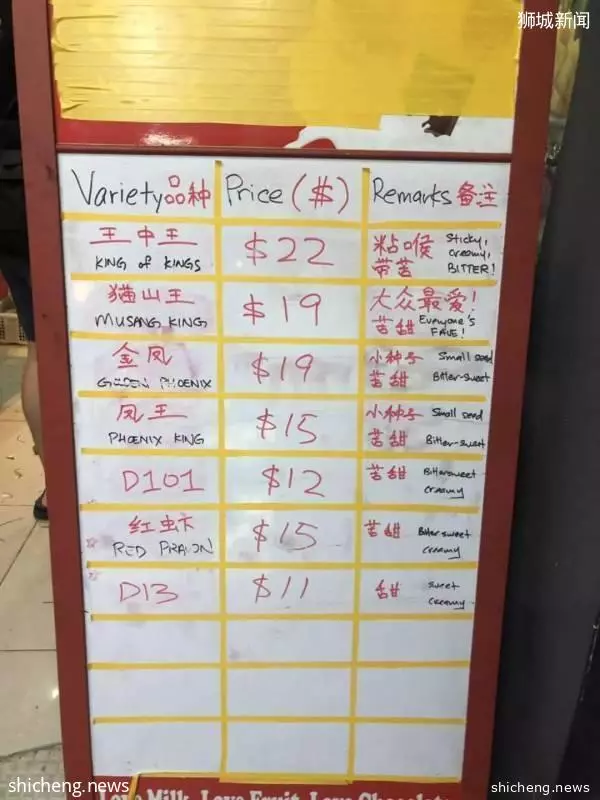 狮城新闻
Variety 品种 Price ($) Remarks 备注
王中王 $22 粘喉 Sticky,
KING of KINGS 带苦 creamy,
BITTER!
猫山王 $19 大众最爱!
MUSANG KING 苦甜 Everyone's
FAVE!
金凤 $19 小种子 Small seed
GOLDEN PHOENIX 苦甜 Bitter-sweet
凤王 $15 小种子 Small seed
PHOENIX KING 苦甜 Bitter-sweet
D101 $12 苦甜 Bittersweet
creamy
红虾 $15 苦甜 Bitter sweet
RED PRAWN creamy
D13 $11 甜 sweet
creamy
Love Milk, Love Fruit, Love Chocolate
shicheng.news
shicheng.news